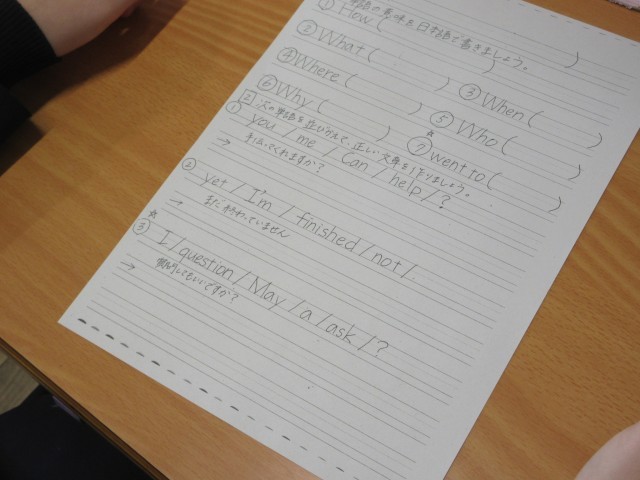 単語の意味を日本語で書きましょう。
① How (          )
② What (          ) ③ When (          )
④ Where (          ) ⑤ Who (          )
⑥ Why (          ) ☆⑦ went to (          )
2 次の単語を並びかえて、正しい文章を作りましょう。
① you / me / Can / help / ?
→ 手伝ってくれますか?
② yet / I'm / finished / not / .
→ まだ終わっていません
☆③ I / question / May / a / ask / ?
→ 質問してもいいですか?